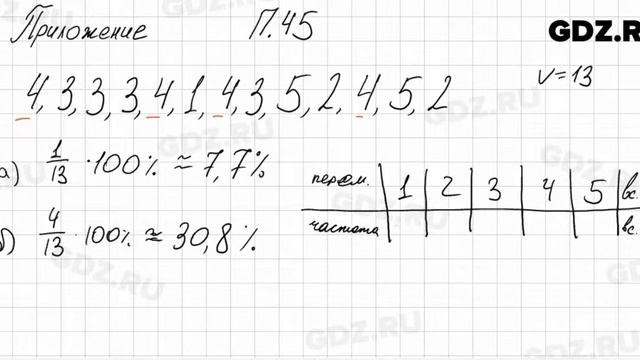 Приложение П.45
GDZ.R
4, 3, 3, 3, 4, 1, 4, 3, 5, 2, 4, 5, 2
v=13
а) 1/13 · 100% ≈ 7,7%
б) 4/13 · 100% ≈ 30,8%
1 2 3 4 5 вс.
частота вс.
GDZ.RU
GDZ.RU
GDZ.RU
GDZ.RU